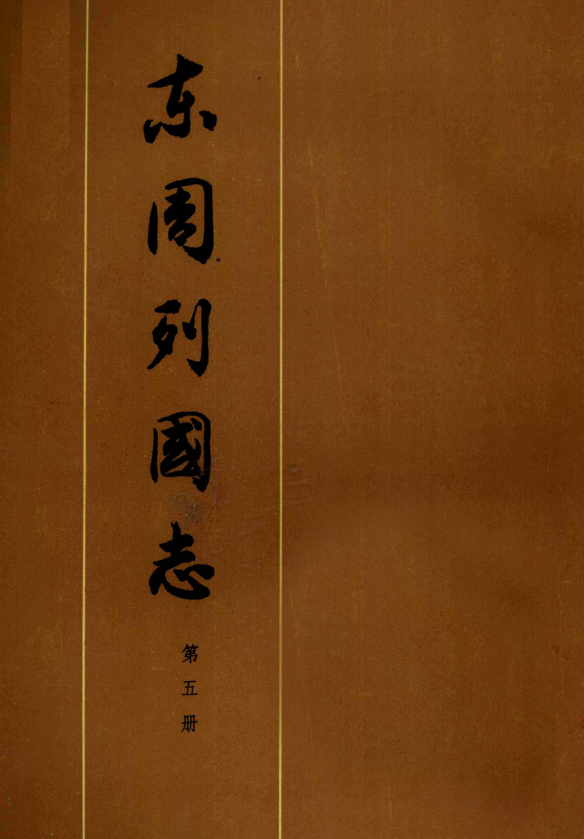 东周列國志
第五册